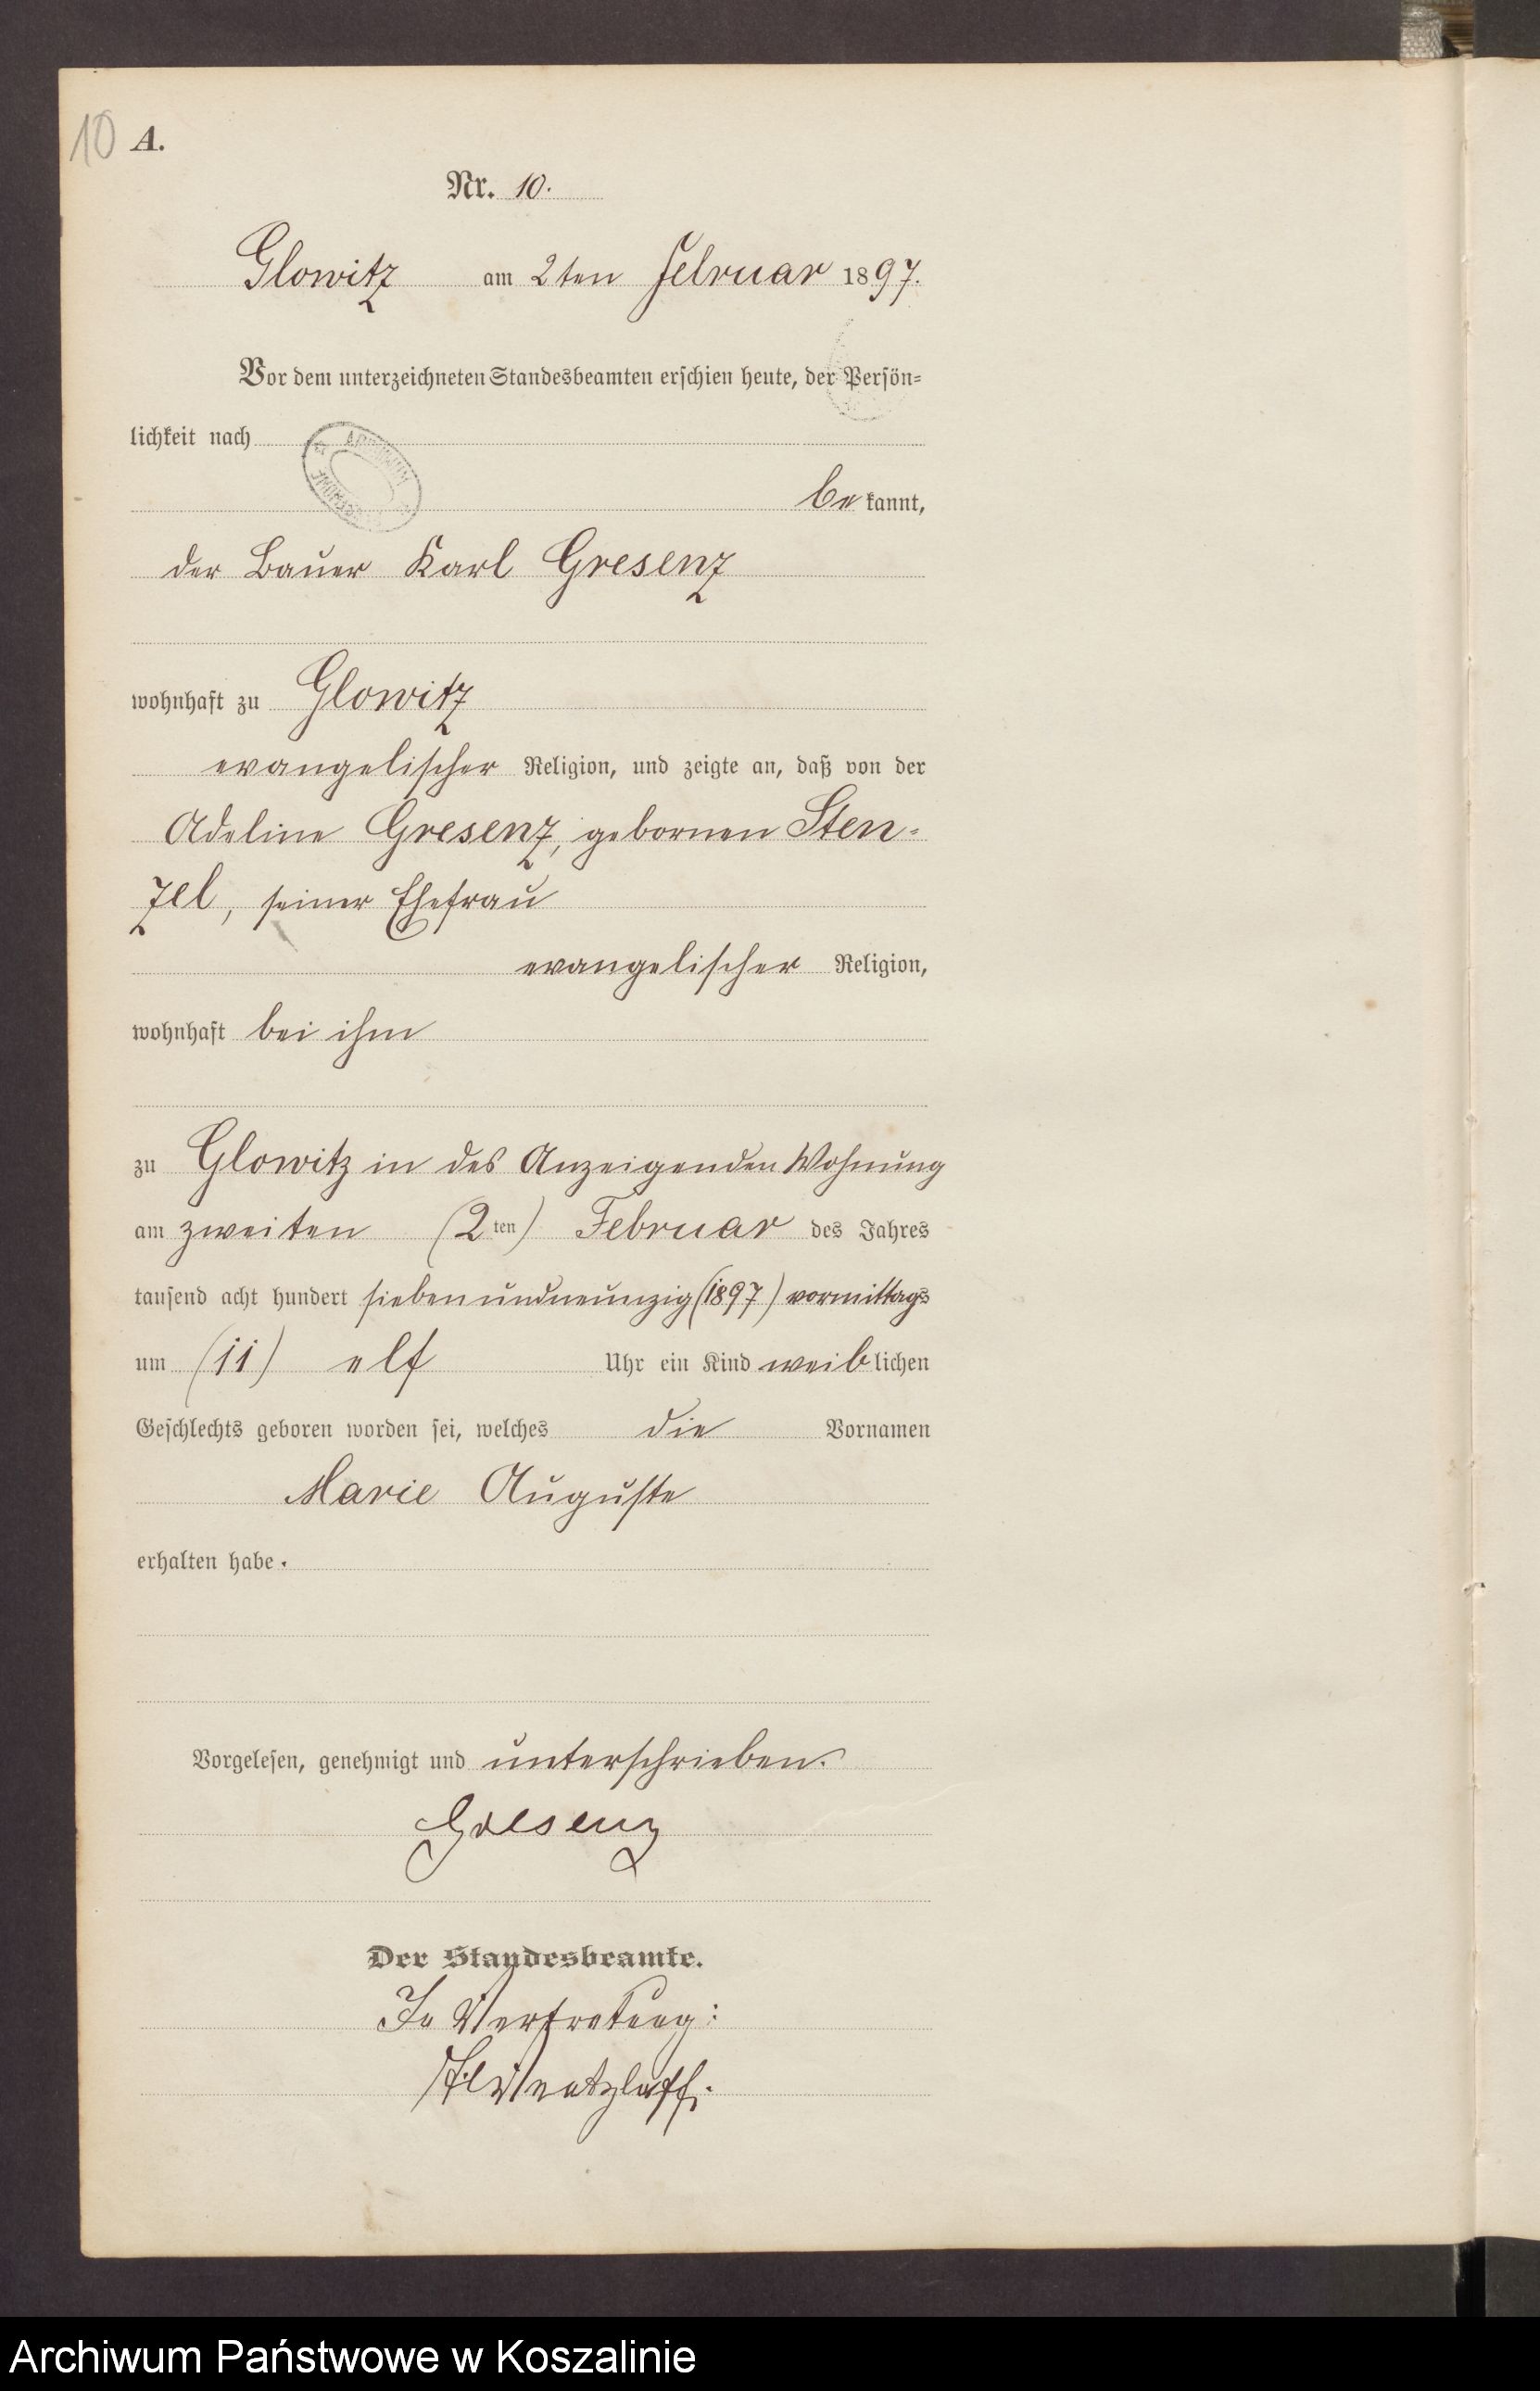 10 A.
Nr. 10.
Glowitz am 2ten Februar 1897.
Vor dem unterzeichneten Standesbeamten erschien heute, der Persön-
lichkeit nach
be kannt,
der Bauer Karl Gresenz
wohnhaft zu Glowitz
evangelischer Religion, und zeigte an, daß von der
Adeline Gresenz, gebornen Sten-
zel, seiner Ehefrau
evangelischer Religion,
wohnhaft bei ihm
zu Glowitz in des Anzeigenden Wohnung
am zweiten (2ten) Februar des Jahres
tausend acht hundert siebenundneunzig (1897) vormittags
um (11) elf Uhr ein Kind weiblichen
Geschlechts geboren worden sei, welches die Vornamen
Marie Auguste
erhalten habe.
Vorgelesen, genehmigt und unterschrieben.
Gresenz
Der Standesbeamte.
In Vertretung:
Archiwum Państwowe w Koszalinie